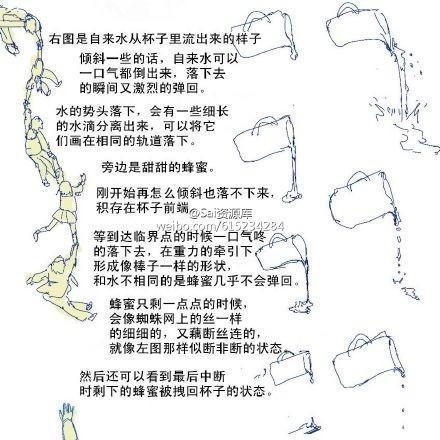 右图是自来水从杯子里流出来的样子
倾斜一些的话，自来水可以
一口气都倒出来，落下去
的瞬间又激烈的弹回。
水的势头落下，会有一些细长
的水滴分离出来，可以将它
们画在相同的轨道落下。
旁边是甜甜的蜂蜜。
刚开始再怎么倾斜也落不下来，
积存在杯子前端。
@Sai资源库
weibo.com/615234284
等到达临界点的时候一口气咚
的落下去，在重力的牵引下，
形成像棒子一样的形状，
和水不相同的是蜂蜜几乎不会弹回。
蜂蜜只剩一点点的时候，
会像蜘蛛网上的丝一样
的细细的，又藕断丝连的，
就像左图那样似断非断的状态。
然后还可以看到最后中断
时剩下的蜂蜜被拽回杯子的状态。